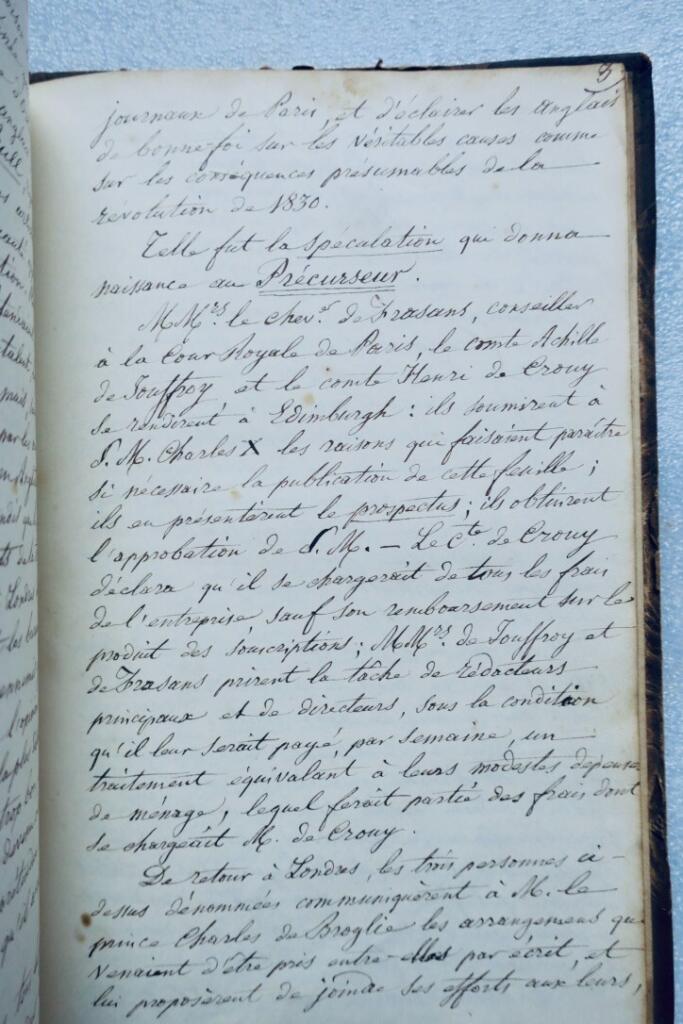 3
journaux de Paris, et d'éclairer les anglais
de bonne foi sur les véritables causes comme
sur les conséquences présumables de la
révolution de 1830.
Telle fut la spéculation qui donna
naissance au Précurseur.
MMrs. le chevr. de Frasans, conseiller
à la Cour Royale de Paris, le comte Achille
de Jouffroy, et le comte Henri de Crouy
se rendirent à Edimburgh : ils soumirent à
S. M. Charles X les raisons qui faisaient paraître
si nécessaire la publication de cette feuille ;
ils en présentèrent le prospectus ; ils obtinrent
l'approbation de S. M. — Le Cte. de Crouy
déclara qu'il se chargerait de tous les frais
de l'entreprise sauf son remboursement sur le
produit des souscriptions ; MMrs. de Jouffroy et
de Frasans prirent la tâche de rédacteurs
principaux et de directeurs, sous la condition
qu'il leur serait payé, par semaine, un
traitement équivalant à leurs modestes dépenses
de ménage, lequel ferait partie des frais dont
se chargeait M. de Crouy.
De retour à Londres, les trois personnes ci-
dessus dénommées communiquèrent à M. le
prince Charles de Broglie les arrangemens qui
venaient d'être pris entre-elles par écrit, et
lui proposèrent de joindre ses efforts aux leurs,